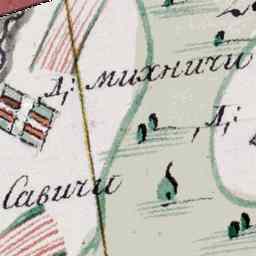 Д; михничи
Д;
Савичи